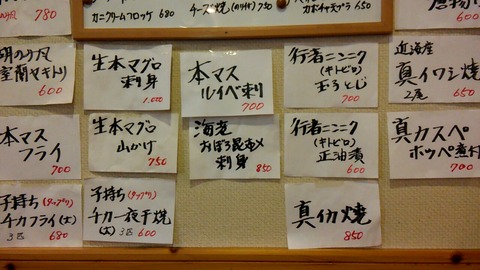 780
カニクリームコロッケ 680
チーズ焼(のり付) 750
カボチャ天プラ 650
650
胡のり风
室蘭ヤキトリ
600
生本マグロ
刺身
1,000
本マス
ルイベ刺
700
行者ニンニク
(キトピロ)
玉子とじ
700
近海産
真イワシ焼
2尾 650
本マス
フライ
700
生本マグロ
山かけ
750
海老
おぼろ昆布〆
刺身
850
行者ニンニク
(キトピロ)
正油漬
600
真カスベ
ホッペ煮付
700
子持ち(タップリ)
チカフライ(大)
3匹 680
子持ち(タップリ)
チカ一夜干焼
(大) 3匹 600
真イカ焼
850